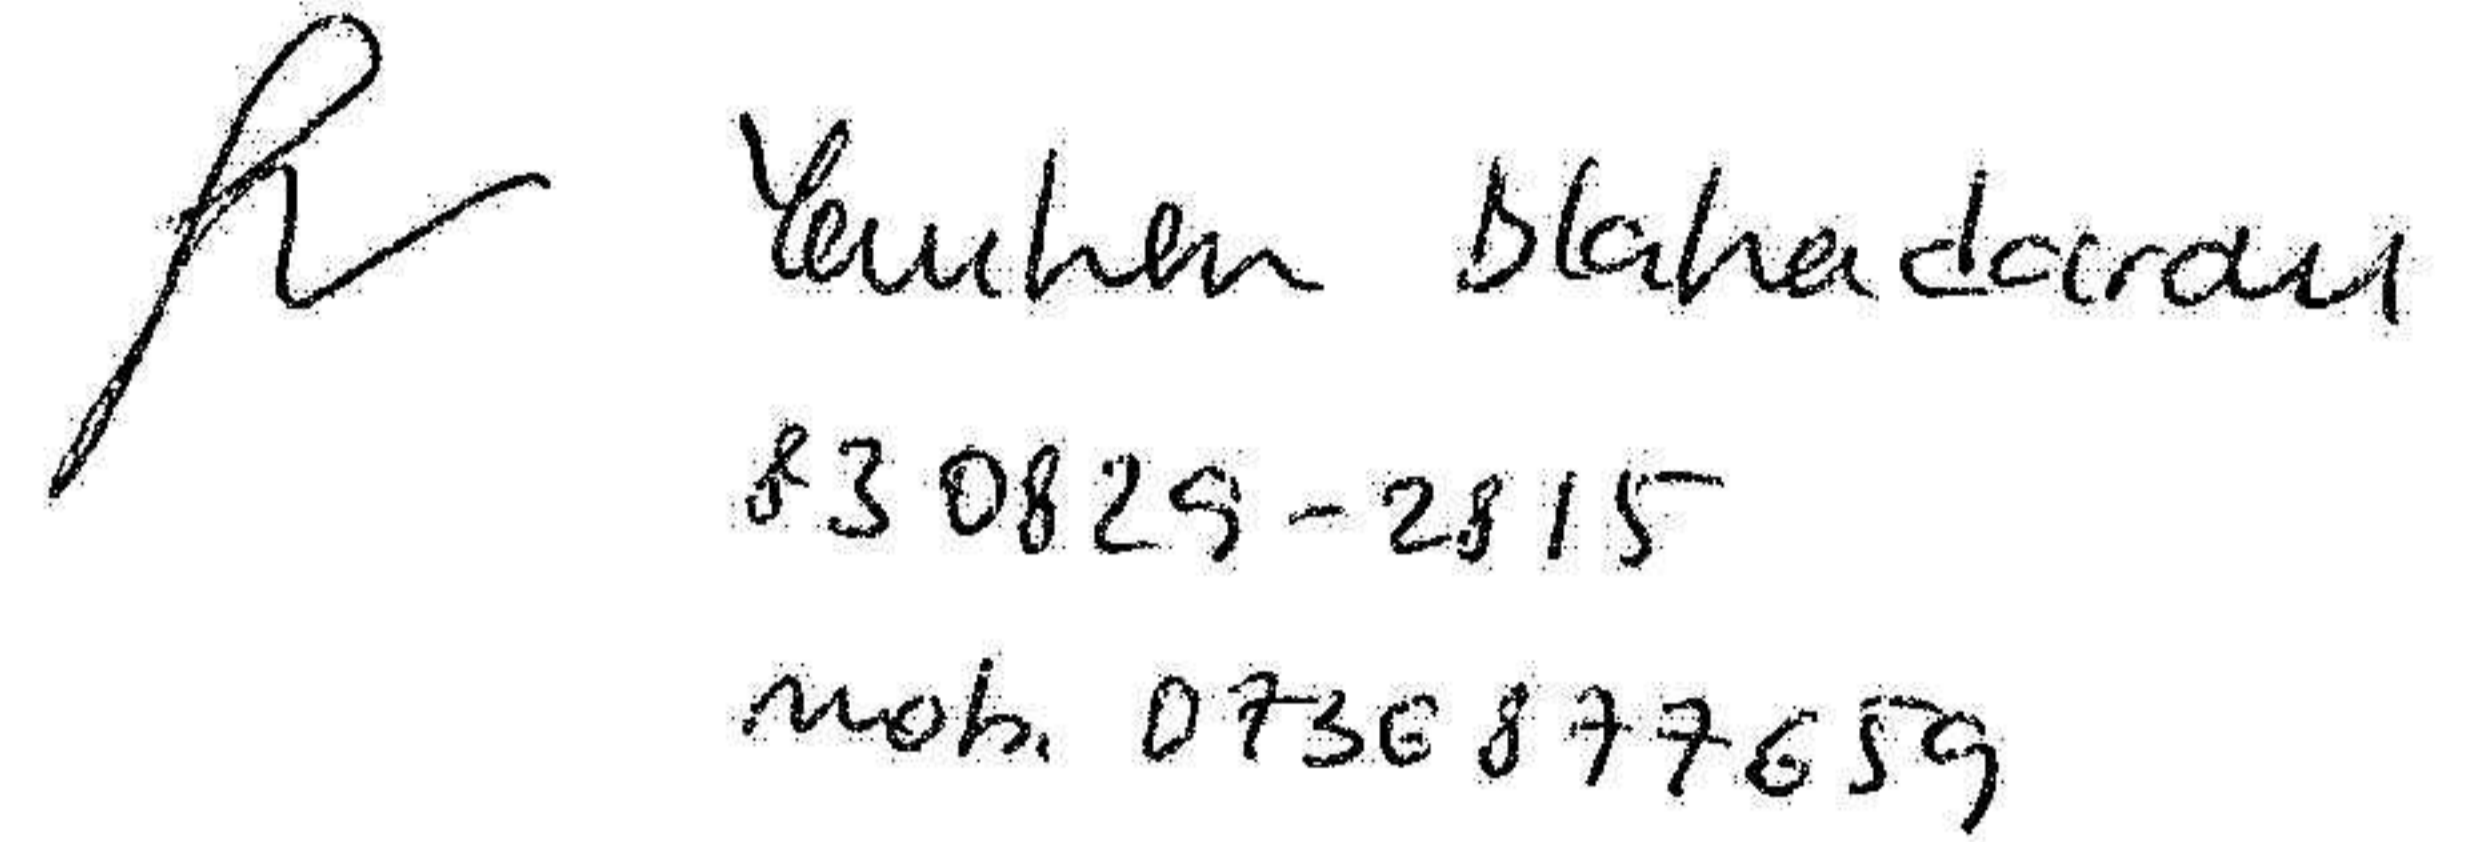 Yauhen Blahadarau
830829-2815
mob. 0736877659